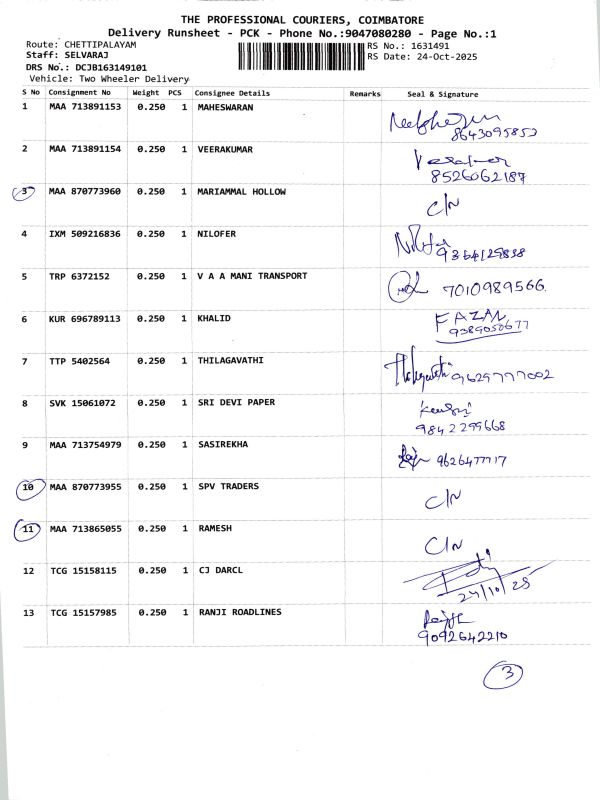 THE PROFESSIONAL COURIERS, COIMBATORE
Delivery Runsheet - PCK - Phone No.:9047080280 - Page No.:1
Route: CHETTIPALAYAM RS No.: 1631491
Staff: SELVARAJ RS Date: 24-Oct-2025
DRS No.: DCJB163149101
Vehicle: Two Wheeler Delivery
S No Consignment No Weight PCS Consignee Details Remarks Seal & Signature
1 MAA 713891153 0.250 1 MAHESWARAN
8643095852
2 MAA 713891154 0.250 1 VEERAKUMAR
8526062187
3 MAA 870773960 0.250 1 MARIAMMAL HOLLOW C/N
4 IXM 509216836 0.250 1 NILOFER
5 TRP 6372152 0.250 1 V A A MANI TRANSPORT 7010989566
6 KUR 696789113 0.250 1 KHALID FAZAN
9389050677
7 TTP 5402564 0.250 1 THILAGAVATHI 9629777002
8 SVK 15061072 0.250 1 SRI DEVI PAPER
9842299668
9 MAA 713754979 0.250 1 SASIREKHA
10 MAA 870773955 0.250 1 SPV TRADERS C/N
11 MAA 713865055 0.250 1 RAMESH C/N
12 TCG 15158115 0.250 1 CJ DARCL
24/10/25
13 TCG 15157985 0.250 1 RANJI ROADLINES
9092642210
3